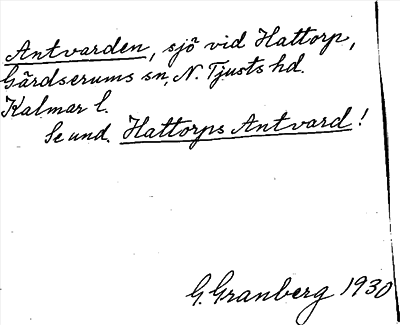 Antvarden, sjö vid Hattorp,
Gärdserums sn, N. Tjusts hd.
Kalmar l.
Se und. Hattorps Antvard!
G. Granberg 1930